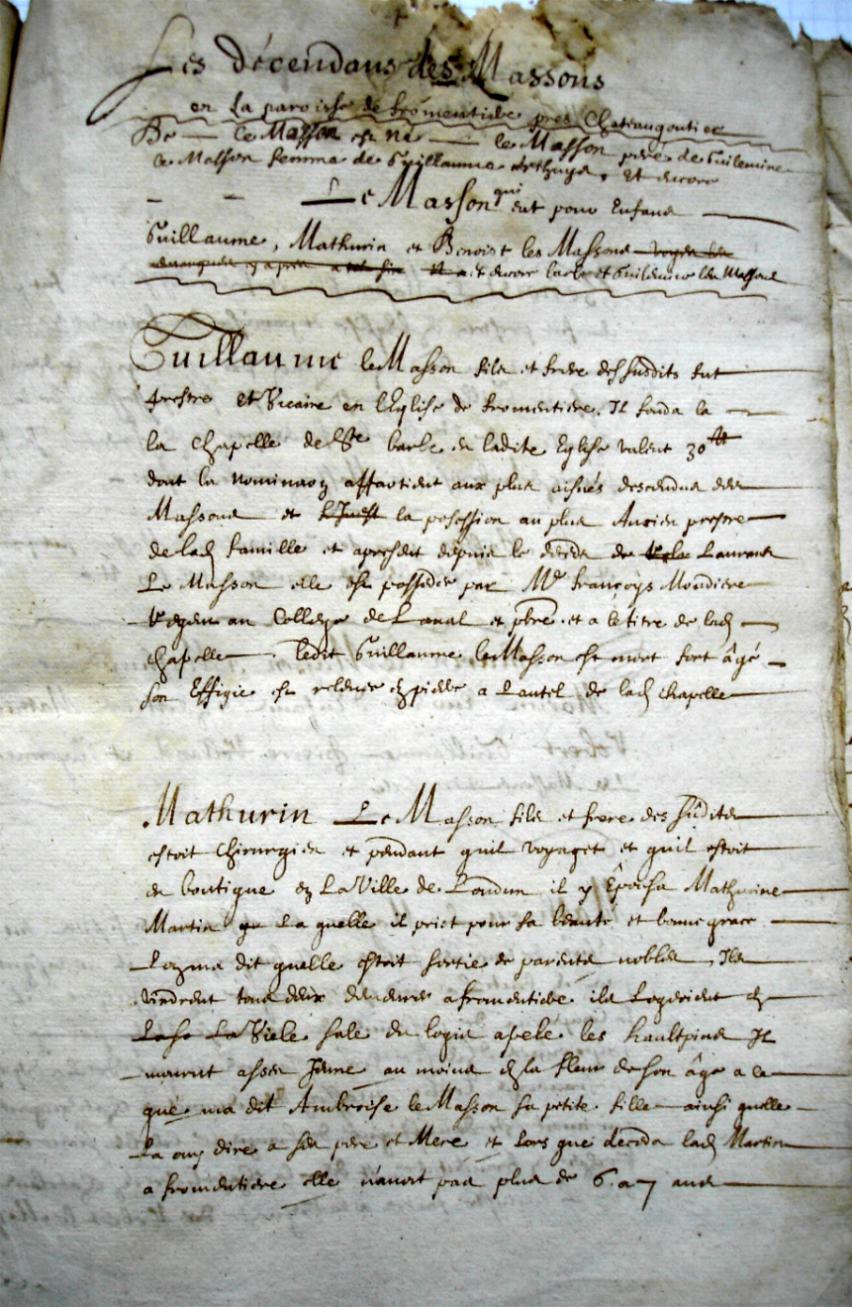 Les décendans des Massons
en La paroisse de fromentiere pres Chateaugontier
De — Le Masson est né — le Masson pere de Guilemine
Le Masson femme de Guillaume et encore
— — Le Masson qui eut pour Enfans
Guillaume, Mathurin et Benoist les Massons
et encore et Guilemine les Massons
Guillaume le Masson fils et frere des susdits fut
prestre et Vicaire en l'Eglise de fromentiere. Il fonda la
la Chapelle de Ste barbe en ladite Eglise valent 30 tt
dont la nominaon appartient aux plus aisnés descendus des
Massons et la possession au plus Ancien prestre
de lad famille et depuis le decedz de Laurens
Le Masson elle est possedée par Mre françoys Moudiere
au College de Laval et pbre et a le titre de lad
chapelle. Ledit Guillaume le Masson est mort fort âgé
son Effigie est relevée en pierre a Lautel de lad chapelle
Mathurin Le Masson fils et frere des susdits
estoit Chirurgien et pendant quil voyaget et quil estoit
en boutique en La Ville de Loudun il y Epousa Mathurine
Martin La quelle il prist pour sa beauté et bonne grace
Lon ma dit quelle estoit sortie de parents nobles, Ils
vindrent tous deux demeurer a fromentiere ils Logerent en
La Viele sale du logis apelé les haultpins Il
mourut assez Jeune au moins en la fleur de son âge a ce
que ma dit Ambroise le Masson sa petite fille ainsi quelle
La ouy dire a ses pere et Mere et Lors que deceda lad Martin
a fromentiere elle n'avoit pas plus de 6 a 7 ans